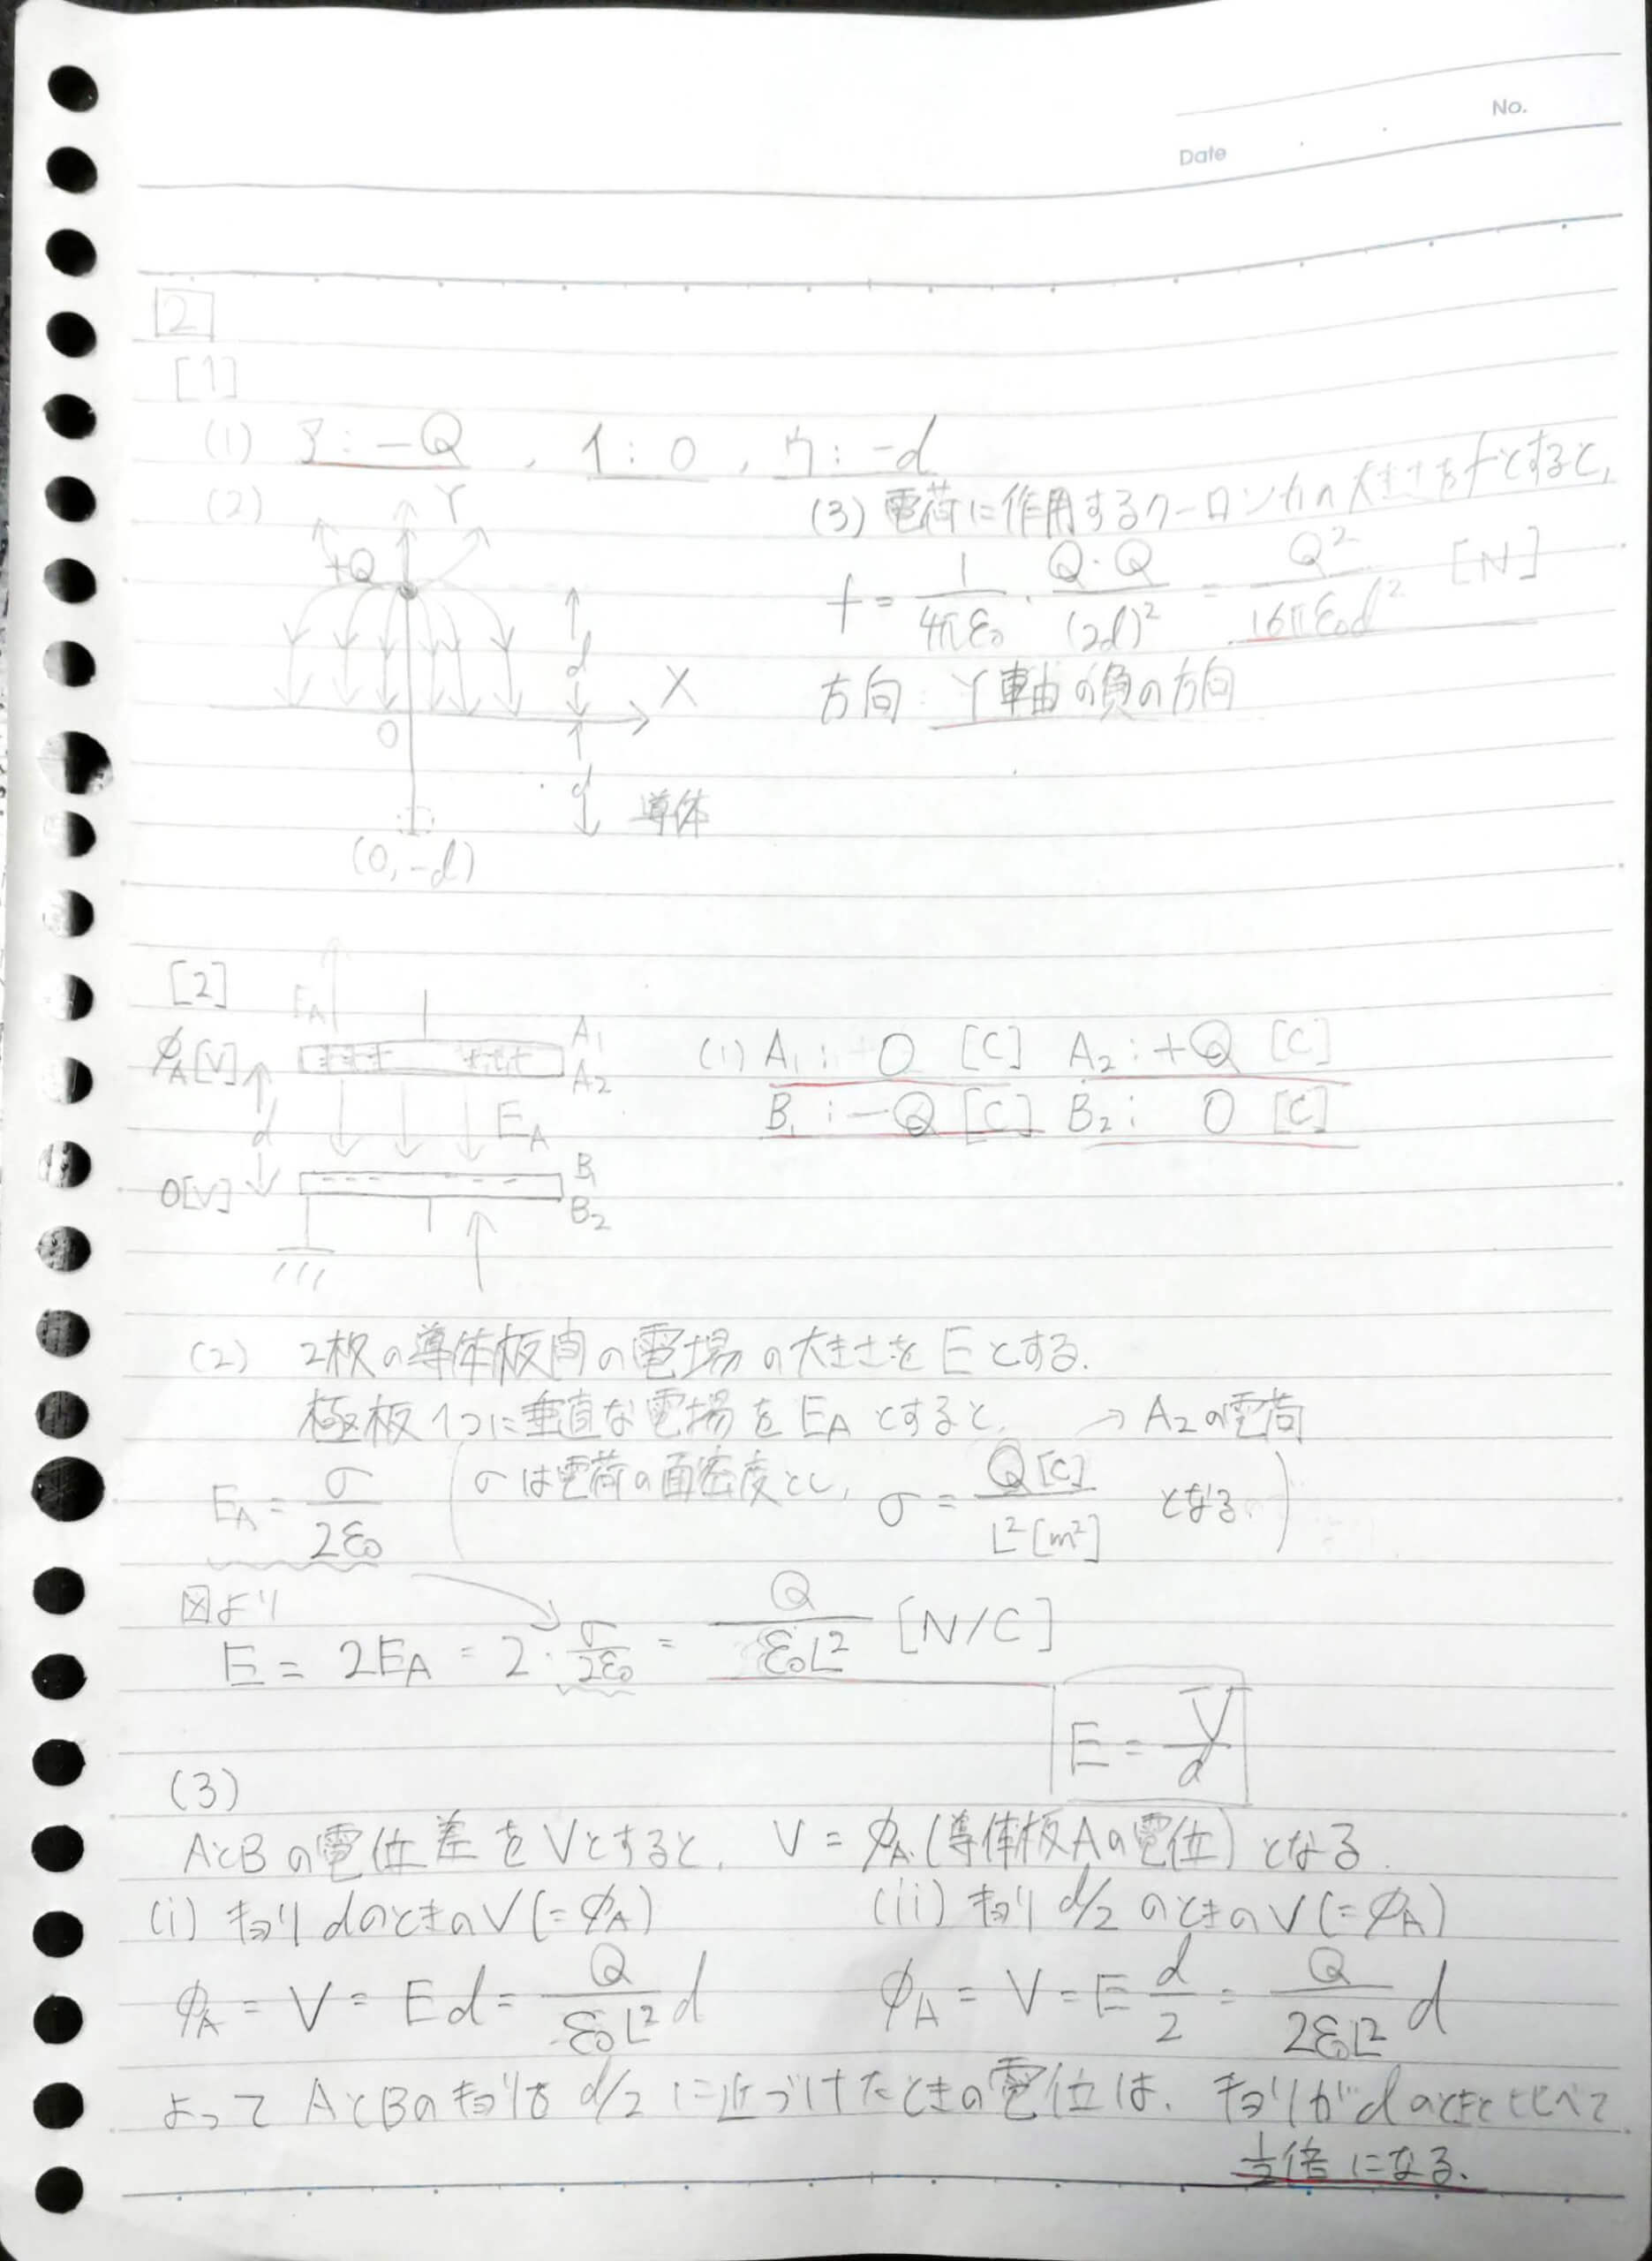 No.
Date
2
[1]
(1) ア：−Q , イ：0 , ウ：−d
(2)
Y
+Q
d
X
O
d
導体
(0, −d)
(3) 電荷に作用するクーロン力の大きさをfとすると,
f = 1/4πε₀ · Q·Q/(2d)² = Q²/16πε₀d² [N]
方向：Y軸の負の方向
[2]
E_A
A₁
φ_A[V]
A₂
d
E_A
B₁
0[V]
B₂
(1) A₁： 0 [C] A₂：+Q [C]
B₁：−Q [C] B₂： 0 [C]
(2) 2枚の導体板間の電場の大きさをEとする.
極板1つに垂直な電場をE_Aとすると, → A₂の電荷
E_A = σ/2ε₀ (σは電荷の面密度とし, σ = Q[C]/L²[m²] となる.)
図より
E = 2E_A = 2·σ/2ε₀ = Q/ε₀L² [N/C]
E = V/d
(3)
AとBの電位差をVとすると, V = φ_A (導体板Aの電位) となる.
(i) キョリdのときのV(=φ_A)
(ii) キョリd/2のときのV(=φ_A)
φ_A = V = Ed = Q/ε₀L² d
φ_A = V = E d/2 = Q/2ε₀L² d
よってAとBのキョリをd/2に近づけたときの電位は, キョリがdのときと比べて
1/2倍になる.